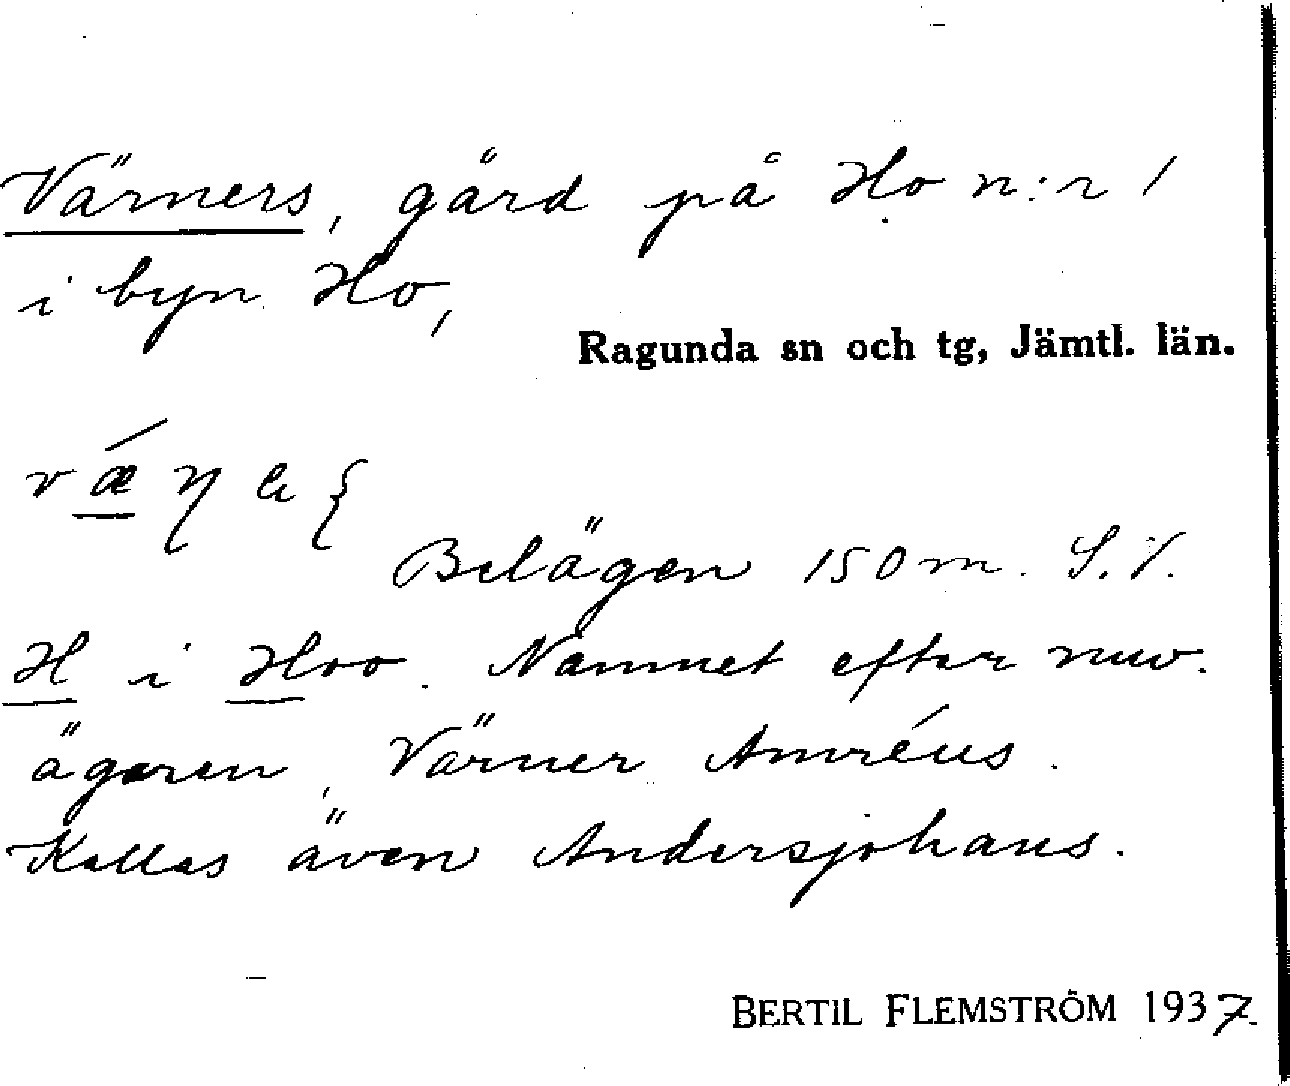 Värners, gård på Ho n:r 1
i byn Ho,
Ragunda sn och tg, Jämtl. län.
Belägen 150 m. S.V.
H i Hoo. Namnet efter nuv.
ägaren, Värner Amréus.
Kallas även Andersjohans.
BERTIL FLEMSTRÖM 1937